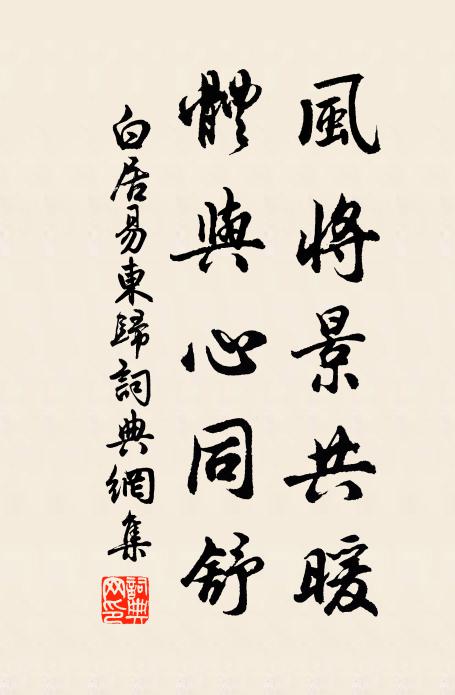 風將景共暖
體與心同舒
白居易東歸詞典網集
詞典網印